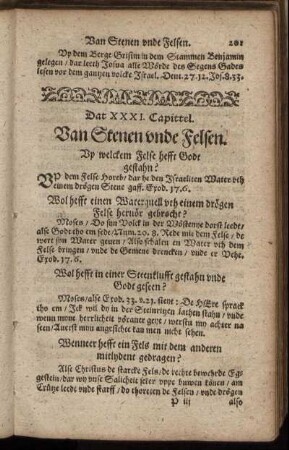 Van Stenen vnde Felsen. 201
Vp dem Berge Grisim in dem Stammen Benjamin
gelegen / dar leeth Josua alle Wörde des Segens Gades
lesen vor dem gantzen volcke Israel. Deut. 27.12. Jos. 8.33.
Dat XXXI. Capittel.
Van Stenen vnde Felsen.
Vp welckem Felse hefft Godt
gestahn?
Vp dem Felse Horeb / dar he den Israeliten Water vth
einem drögen Stene gaff. Exod. 17.6.
Wol hefft einen Waterquell vth einem drögen
Felse hervör gebrocht?
Moses / Do syn Volck in der Wöstenye dorst leedt /
alse Godt tho em sede / Num. 20. 8. Rede mit dem Felse / de
wert syn Water geven / Also schalen en Water vth dem
Felse bringen / vnde de Gemene drencken / vnde er Vehe.
Exod. 17.6.
Wol hefft in einer Steenklufft gestahn vnde
Godt geseen?
Moses / alse Exod. 33. v.23. steit: De HErre sprack
tho em / Ick wil dy in der Steinritzen lathen stahn / vnde
wenn mene herrlicheit vöraver geyt / werstu my achter na
seen / Averst myn angesichte kan men nicht sehen.
Wenneer hefft ein Fels mit dem anderen
mitlydent gedragen?
Alse Christus de starcke Fels / de rechte bewehrde Eg-
gestein / dar wy vnse Salicheit seker vppe buwen könen / am
Crütze leedt vnde starff / do thoreten de Felsen / vnde drögen
P iij also